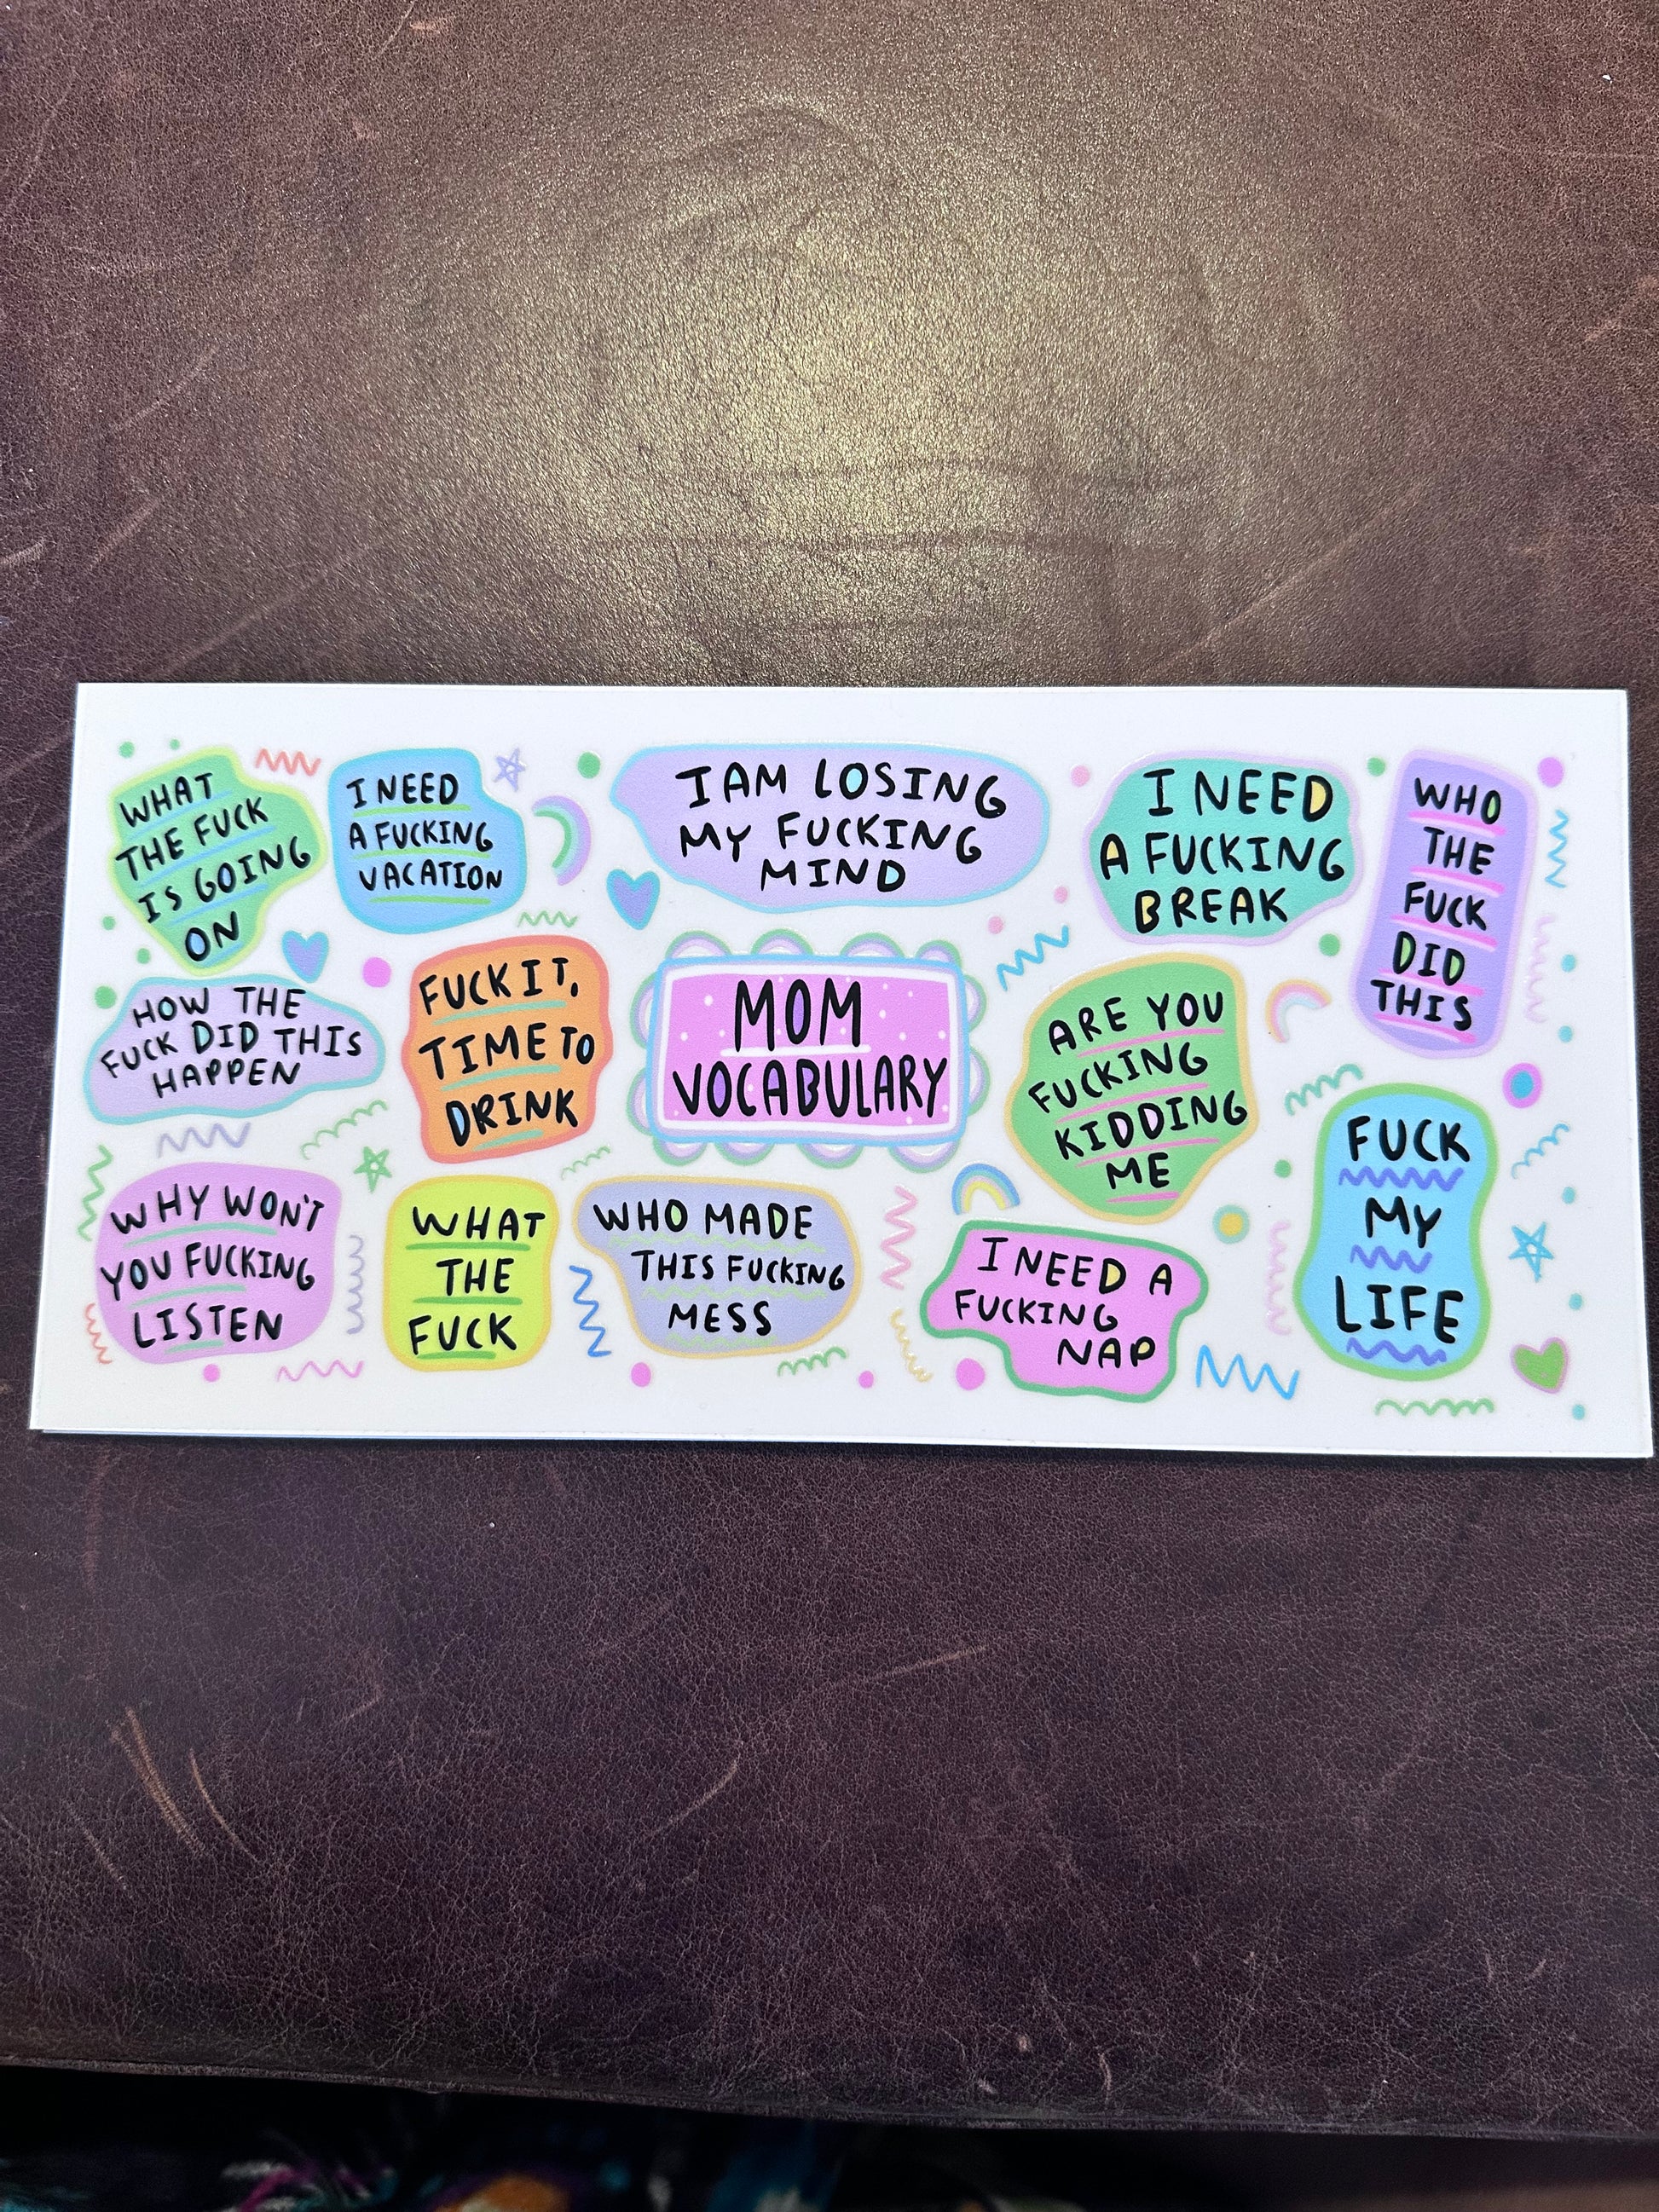 WHAT
THE FUCK
IS GOING
ON
I NEED
A FUCKING
VACATION
I AM LOSING
MY FUCKING
MIND
I NEED
A FUCKING
BREAK
WHO
THE
FUCK
DID
THIS
HOW THE
FUCK DID THIS
HAPPEN
FUCK IT,
TIME TO
DRINK
MOM
VOCABULARY
ARE YOU
FUCKING
KIDDING
ME
FUCK
MY
LIFE
WHY WON'T
YOU FUCKING
LISTEN
WHAT
THE
FUCK
WHO MADE
THIS FUCKING
MESS
I NEED A
FUCKING
NAP